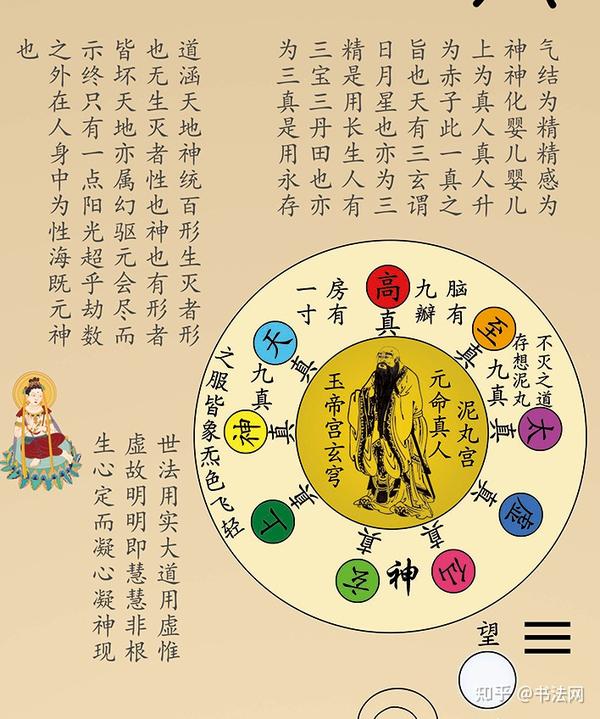 气结为精精感为
神神化婴儿婴儿
上为真人真人升
为赤子此一真之
旨也天有三玄谓
日月星也亦为三
精是用长生人有
三宝三丹田也亦
为三真是用永存
道涵天地神统百形生灭者形
也无生灭者性也神也有形者
皆坏天地亦属幻驱元会尽而
示终只有一点阳光超乎劫数
之外在人身中为性海既元神
也
脑有
九瓣
房有
一寸
高真
至真
太真
玄真
上真
天真
神真
九真
不灭之道
存想泥丸
九真
泥丸宫
元命真人
玉帝宫玄穹
之服皆象炁色飞轻
神
世法用实大道用虚惟
虚故明明即慧慧非根
生心定而凝心凝神现
望
知乎 @书法网